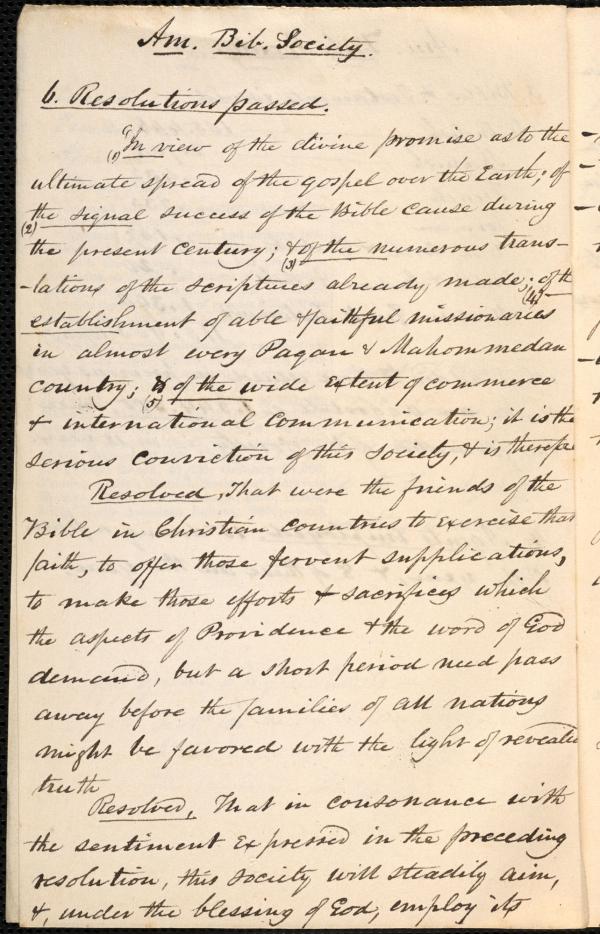 Am. Bib. Society.
6. Resolutions passed.
(1) "In view of the divine promise as to the
ultimate spread of the gospel over the Earth; of
the signal success of the Bible cause during
(2)
the present century; & of the numerous trans-
(3)
-lations of the scriptures already made; of th
(4)
establishment of able & faithful missionaries
in almost every Pagan & Mahommedan
country; & of the wide extent of commerce
(5)
& international communication; it is the
serious conviction of this society, & is therefore
Resolved, That were the friends of the
Bible in Christian countries to exercise that
faith, to offer those fervent supplications,
to make those efforts & sacrifices which
the aspects of Providence & the word of God
demand, but a short period need pass
away before the families of all nations
might be favored with the light of revealed
truth
Resolved, That in consonance with
the sentiment Expressed in the preceding
resolution, this society will steadily aim,
&, under the blessing of God, employ its